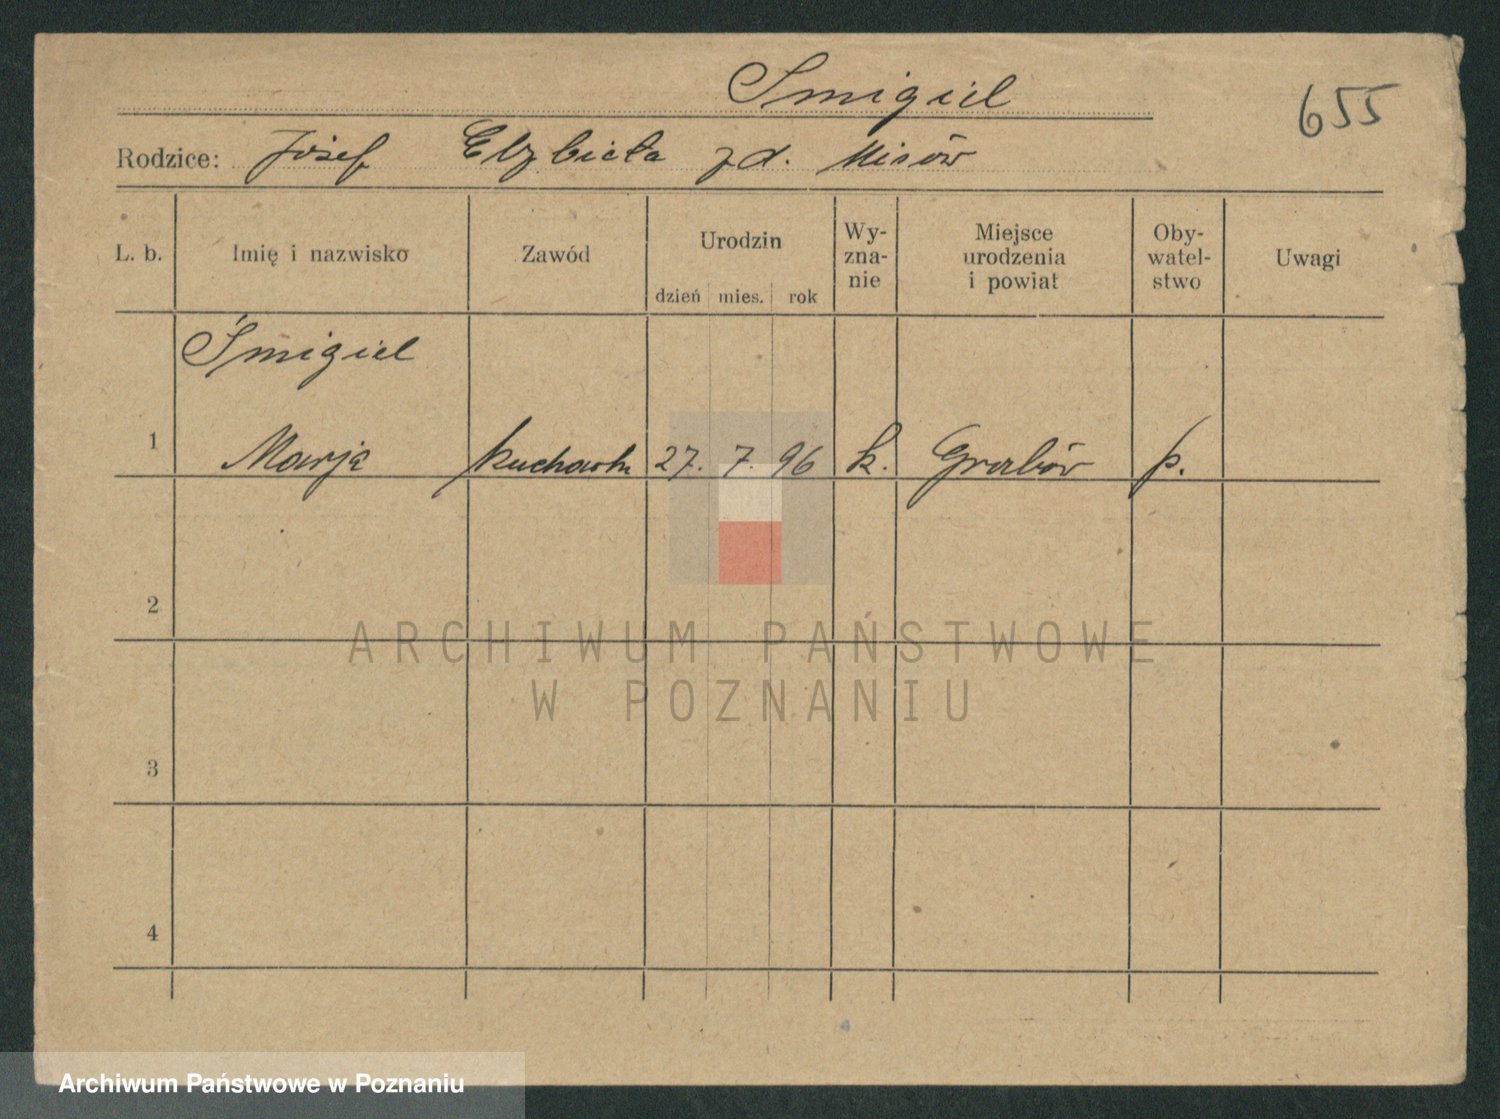 Smigiel
655
Rodzice: Józef Elżbieta zd. Misów
L. b. Imię i nazwisko Zawód Urodzin dzień mies. rok Wy- zna- nie Miejsce urodzenia i powiat Oby- watel- stwo Uwagi
Śmigiel
1 Marja kucharka 27. 7. 96 k. Grabów p.
2
ARCHIWUM PAŃSTWOWE
W POZNANIU
3
4
Archiwum Państwowe w Poznaniu